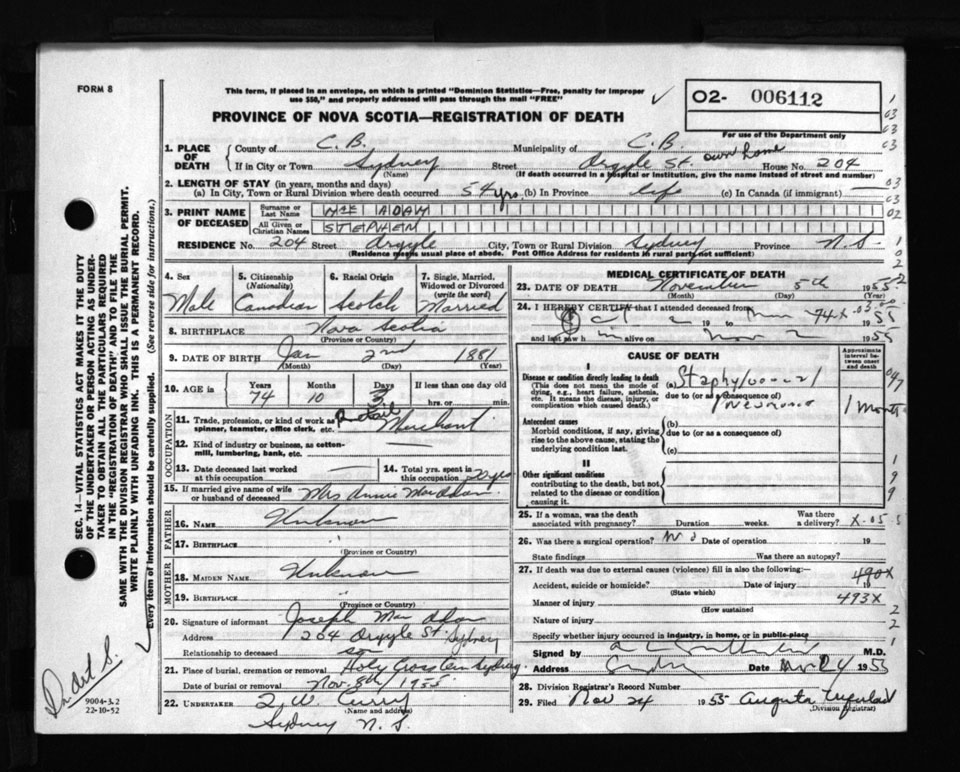 FORM 8
This form, if placed in an envelope, on which is printed "Dominion Statistics—Free, penalty for improper
use $50," and properly addressed will pass through the mail "FREE"
PROVINCE OF NOVA SCOTIA—REGISTRATION OF DEATH
O2- 006112
For use of the Department only
1. PLACE OF DEATH County of C. B. Municipality of C. B.
If in City or Town Sydney Street Argyle St. own home House No. 204
(Name) (If death occurred in a hospital or institution, give the name instead of street and number)
2. LENGTH OF STAY (in years, months and days)
(a) In City, Town or Rural Division where death occurred 54 yrs. (b) In Province life (c) In Canada (if immigrant)
3. PRINT NAME OF DECEASED Surname or Last Name MAC ADAM
All Given or Christian Names STEPHEN
RESIDENCE No. 204 Street Argyle City, Town or Rural Division Sydney Province N. S.
(Residence means usual place of abode. Post Office Address for residents in rural parts not sufficient)
4. Sex Male
5. Citizenship (Nationality) Canadian
6. Racial Origin Scotch
7. Single, Married, Widowed or Divorced (write the word) Married
8. BIRTHPLACE Nova Scotia
(Province or Country)
9. DATE OF BIRTH Jan 2nd 1881
(Month) (Day) (Year)
10. AGE in Years 74 Months 10 Days 3 If less than one day old
hrs. or min.
OCCUPATION
11. Trade, profession, or kind of work as spinner, teamster, office clerk, etc. Retail Merchant
12. Kind of industry or business, as cotton-mill, lumbering, bank, etc.
13. Date deceased last worked at this occupation
14. Total yrs. spent in this occupation
15. If married give name of wife or husband of deceased Mrs Annie MacAdam
FATHER
16. NAME Unknown
17. BIRTHPLACE
(Province or Country)
MOTHER
18. MAIDEN NAME Unknown
19. BIRTHPLACE
(Province or Country)
20. Signature of informant Joseph MacAdam
Address 204 Argyle St. Sydney
Relationship to deceased son
21. Place of burial, cremation or removal Holy Cross Cem Sydney
Date of burial or removal Nov. 8th / 1955
22. UNDERTAKER W. Curry
(Name and address)
Sydney N. S.
MEDICAL CERTIFICATE OF DEATH
23. DATE OF DEATH November 5th 1955
(Month) (Day) (Year)
24. I HEREBY CERTIFY that I attended deceased from
19 to 74X 1955
and last saw h alive on Nov 1955
CAUSE OF DEATH
Approximate interval between onset and death
I
Disease or condition directly leading to death
(This does not mean the mode of dying, e.g., heart failure, asthenia, etc. It means the disease, injury, or complication which caused death.)
(a) Staphylococcal
due to (or as a consequence of)
Pneumonia 1 month
Antecedent causes
Morbid conditions, if any, giving rise to the above cause, stating the underlying condition last.
(b)
due to (or as a consequence of)
(c)
II
Other significant conditions
contributing to the death, but not related to the disease or condition causing it.
25. If a woman, was the death associated with pregnancy? Duration weeks. Was there a delivery?
26. Was there a surgical operation? No Date of operation 19
State findings Was there an autopsy?
27. If death was due to external causes (violence) fill in also the following:—
490X
Accident, suicide or homicide? Date of injury 19
(State which)
493X
Manner of injury
(How sustained
Nature of injury
Specify whether injury occurred in industry, in home, or in public place
Signed by M.D.
Address Date 1955
28. Division Registrar's Record Number
29. Filed Nov 24 1955
(Division Registrar)
SEC. 14—VITAL STATISTICS ACT MAKES IT THE DUTY
OF THE UNDERTAKER OR PERSON ACTING AS UNDER-
TAKER TO OBTAIN ALL THE PARTICULARS REQUIRED
IN THE "REGISTRATION OF DEATH" AND TO FILE THE
SAME WITH THE DIVISION REGISTRAR WHO SHALL ISSUE THE BURIAL PERMIT.
WRITE PLAINLY WITH UNFADING INK. THIS IS A PERMANENT RECORD.
Every item of information should be carefully supplied. (See reverse side for instructions.)
9004-3.2
22-10-52